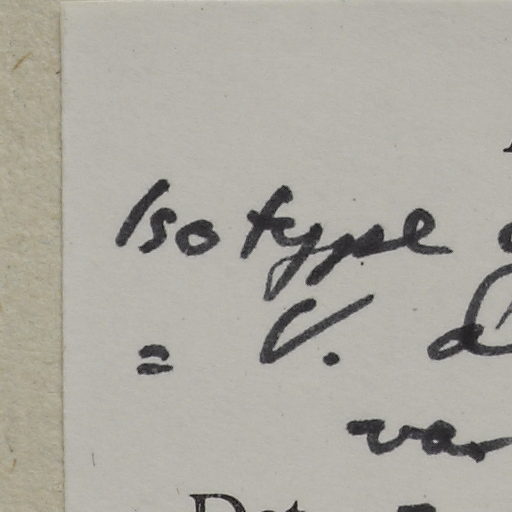 Isotype
= V.
var
Det